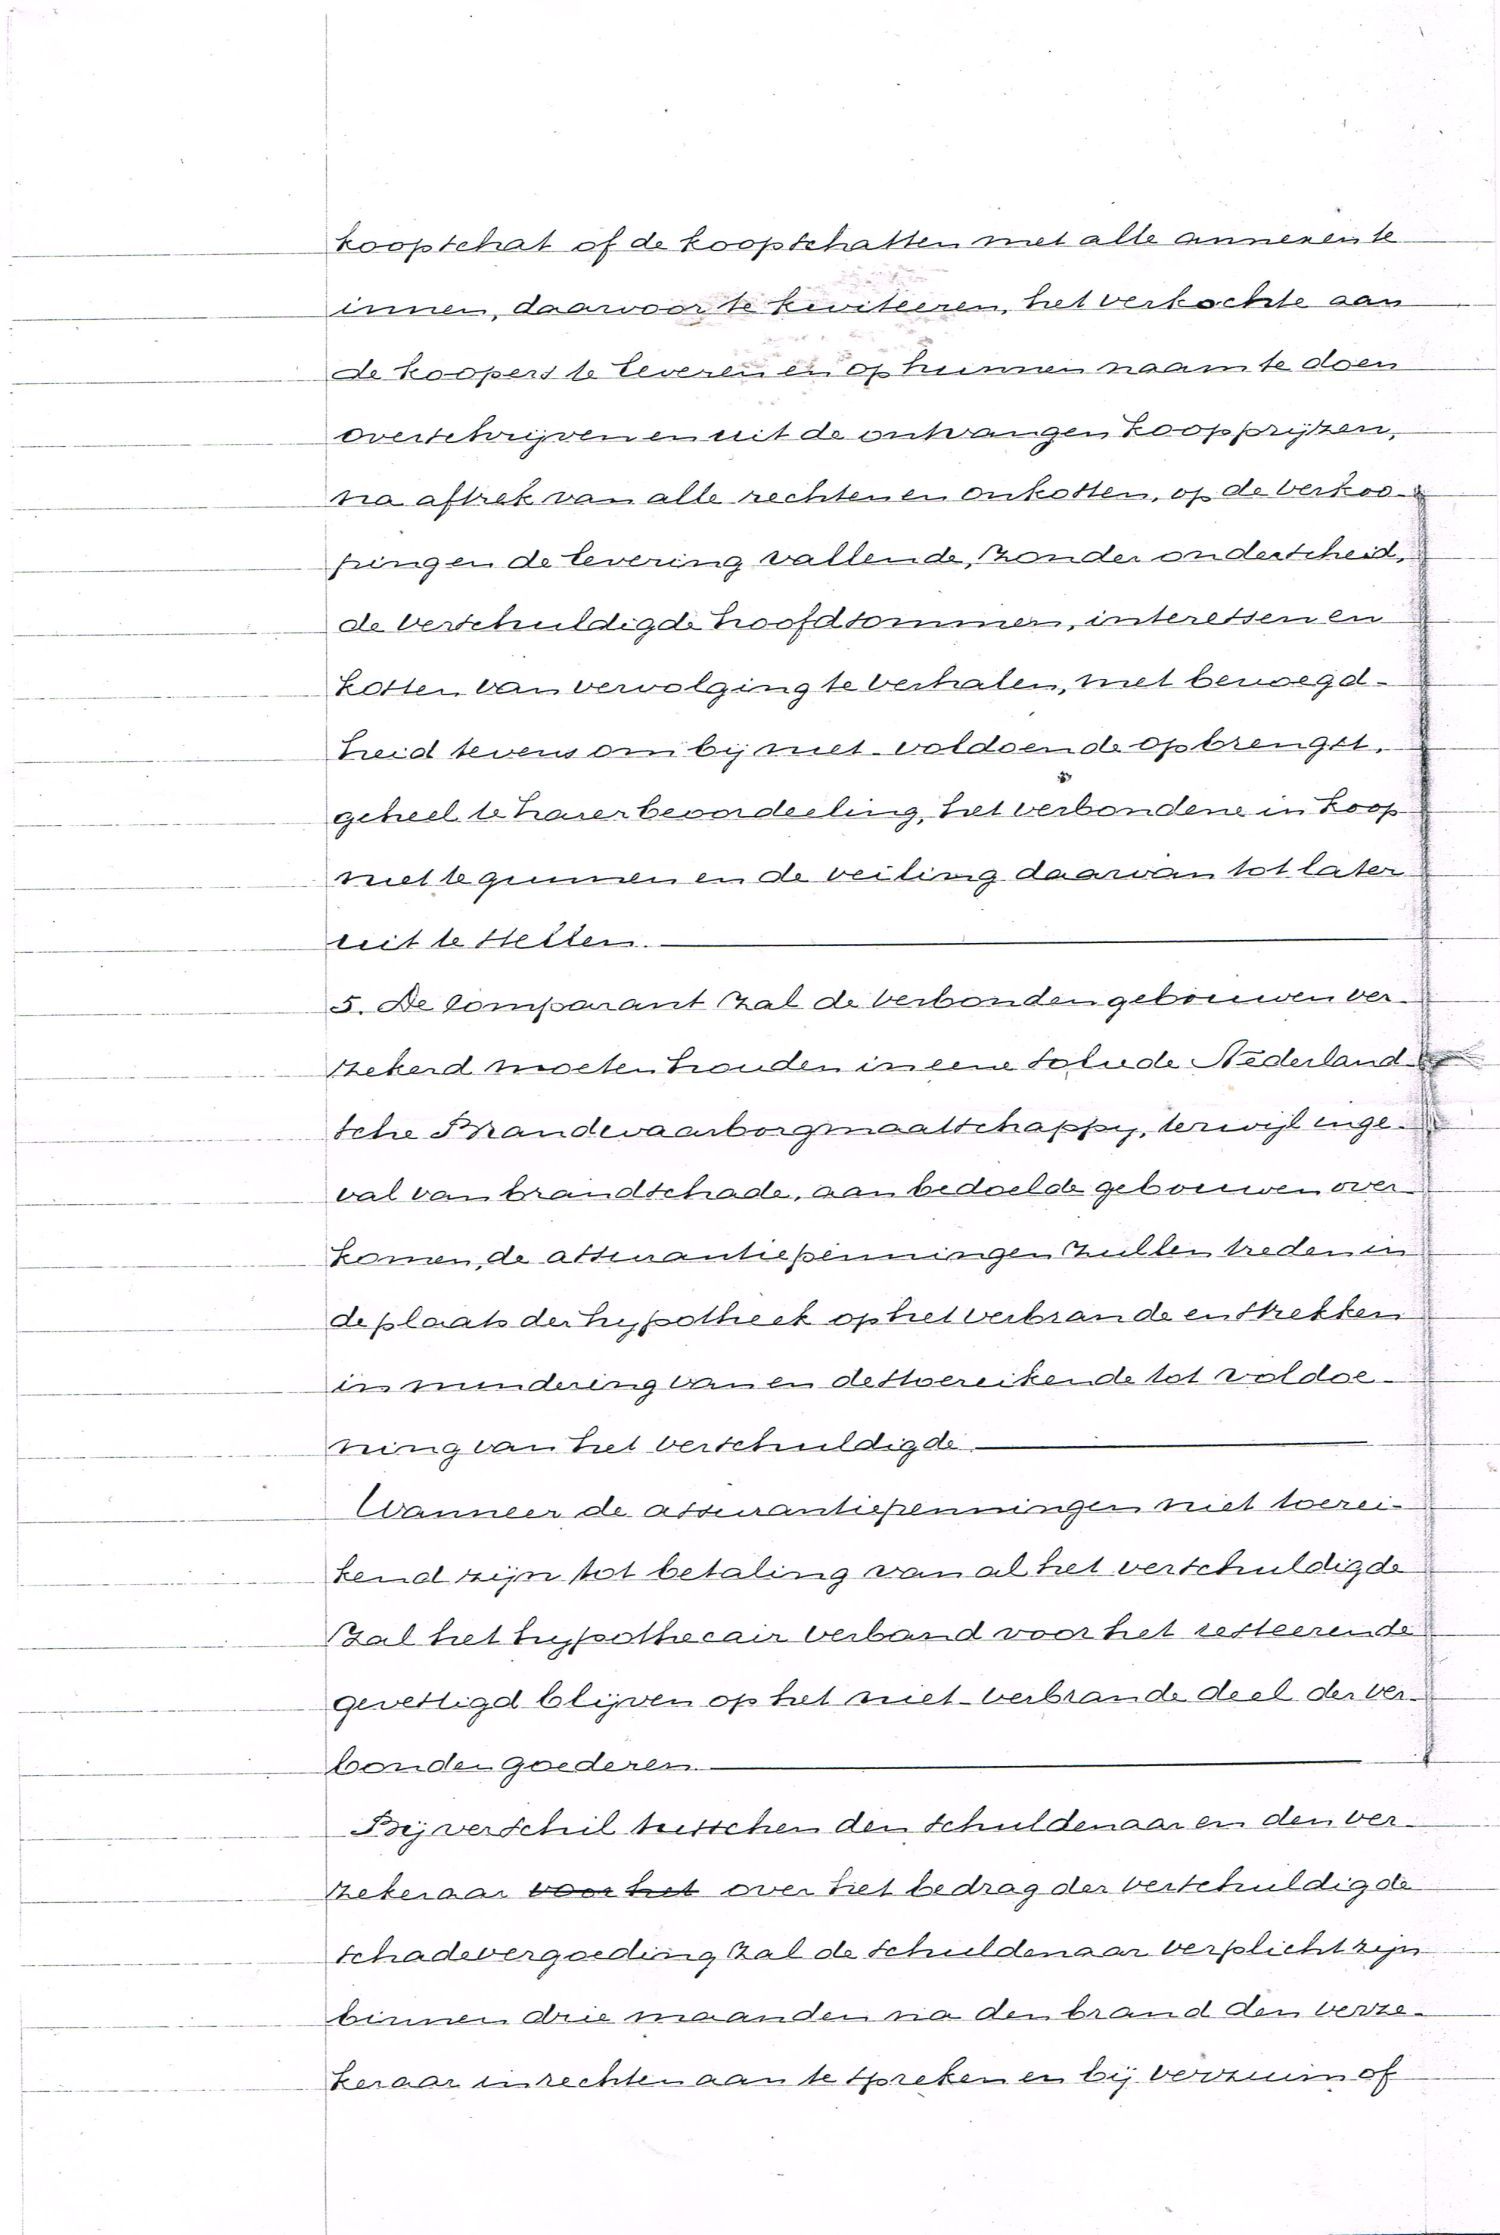 koopschat of de koopschatten met alle annexen te
innen, daarvoor te kwiteeren, het verkochte aan
de koopers te leveren en op hunnen naam te doen
overschrijven en uit de ontvangen koopprijzen,
na aftrek van alle rechten en onkosten, op de verkoo-
ping en de levering vallende, zonder onderscheid,
de verschuldigde hoofdsommen, interessen en
kosten van vervolging te verhalen, met bevoegd-
heid tevens om bij niet-voldoende opbrengst,
geheel te harer beoordeeling, het verbondene in koop
niet te gunnen en de veiling daarvan tot later
uit te stellen.
5. De comparant zal de verbonden gebouwen ver-
zekerd moeten houden in eene solude Nederland-
sche Brandwaarborgmaatschappy, terwijl inge-
val van brandschade, aan bedoelde gebouwen over-
komen, de assurantiepenningen zullen treden in
de plaats der hypotheek op het verbrande en strekken
in mindering van en desttoereikende tot voldoe-
ning van het verschuldigde
Wanneer de assurantiepenningen niet toerei-
kend zijn tot betaling van al het verschuldigde
zal het hypothecair verband voor het resteerende
gevestigd blijven op het niet-verbrande deel der ver-
bonden goederen.
Bij verschil tusschen den schuldenaar en den ver-
zekeraar voor het over het bedrag der verschuldigde
schadevergoeding zal de schuldenaar verplicht zijn
binnen drie maanden na den brand den verze-
keraar in rechten aan te spreken en bij verzuim of